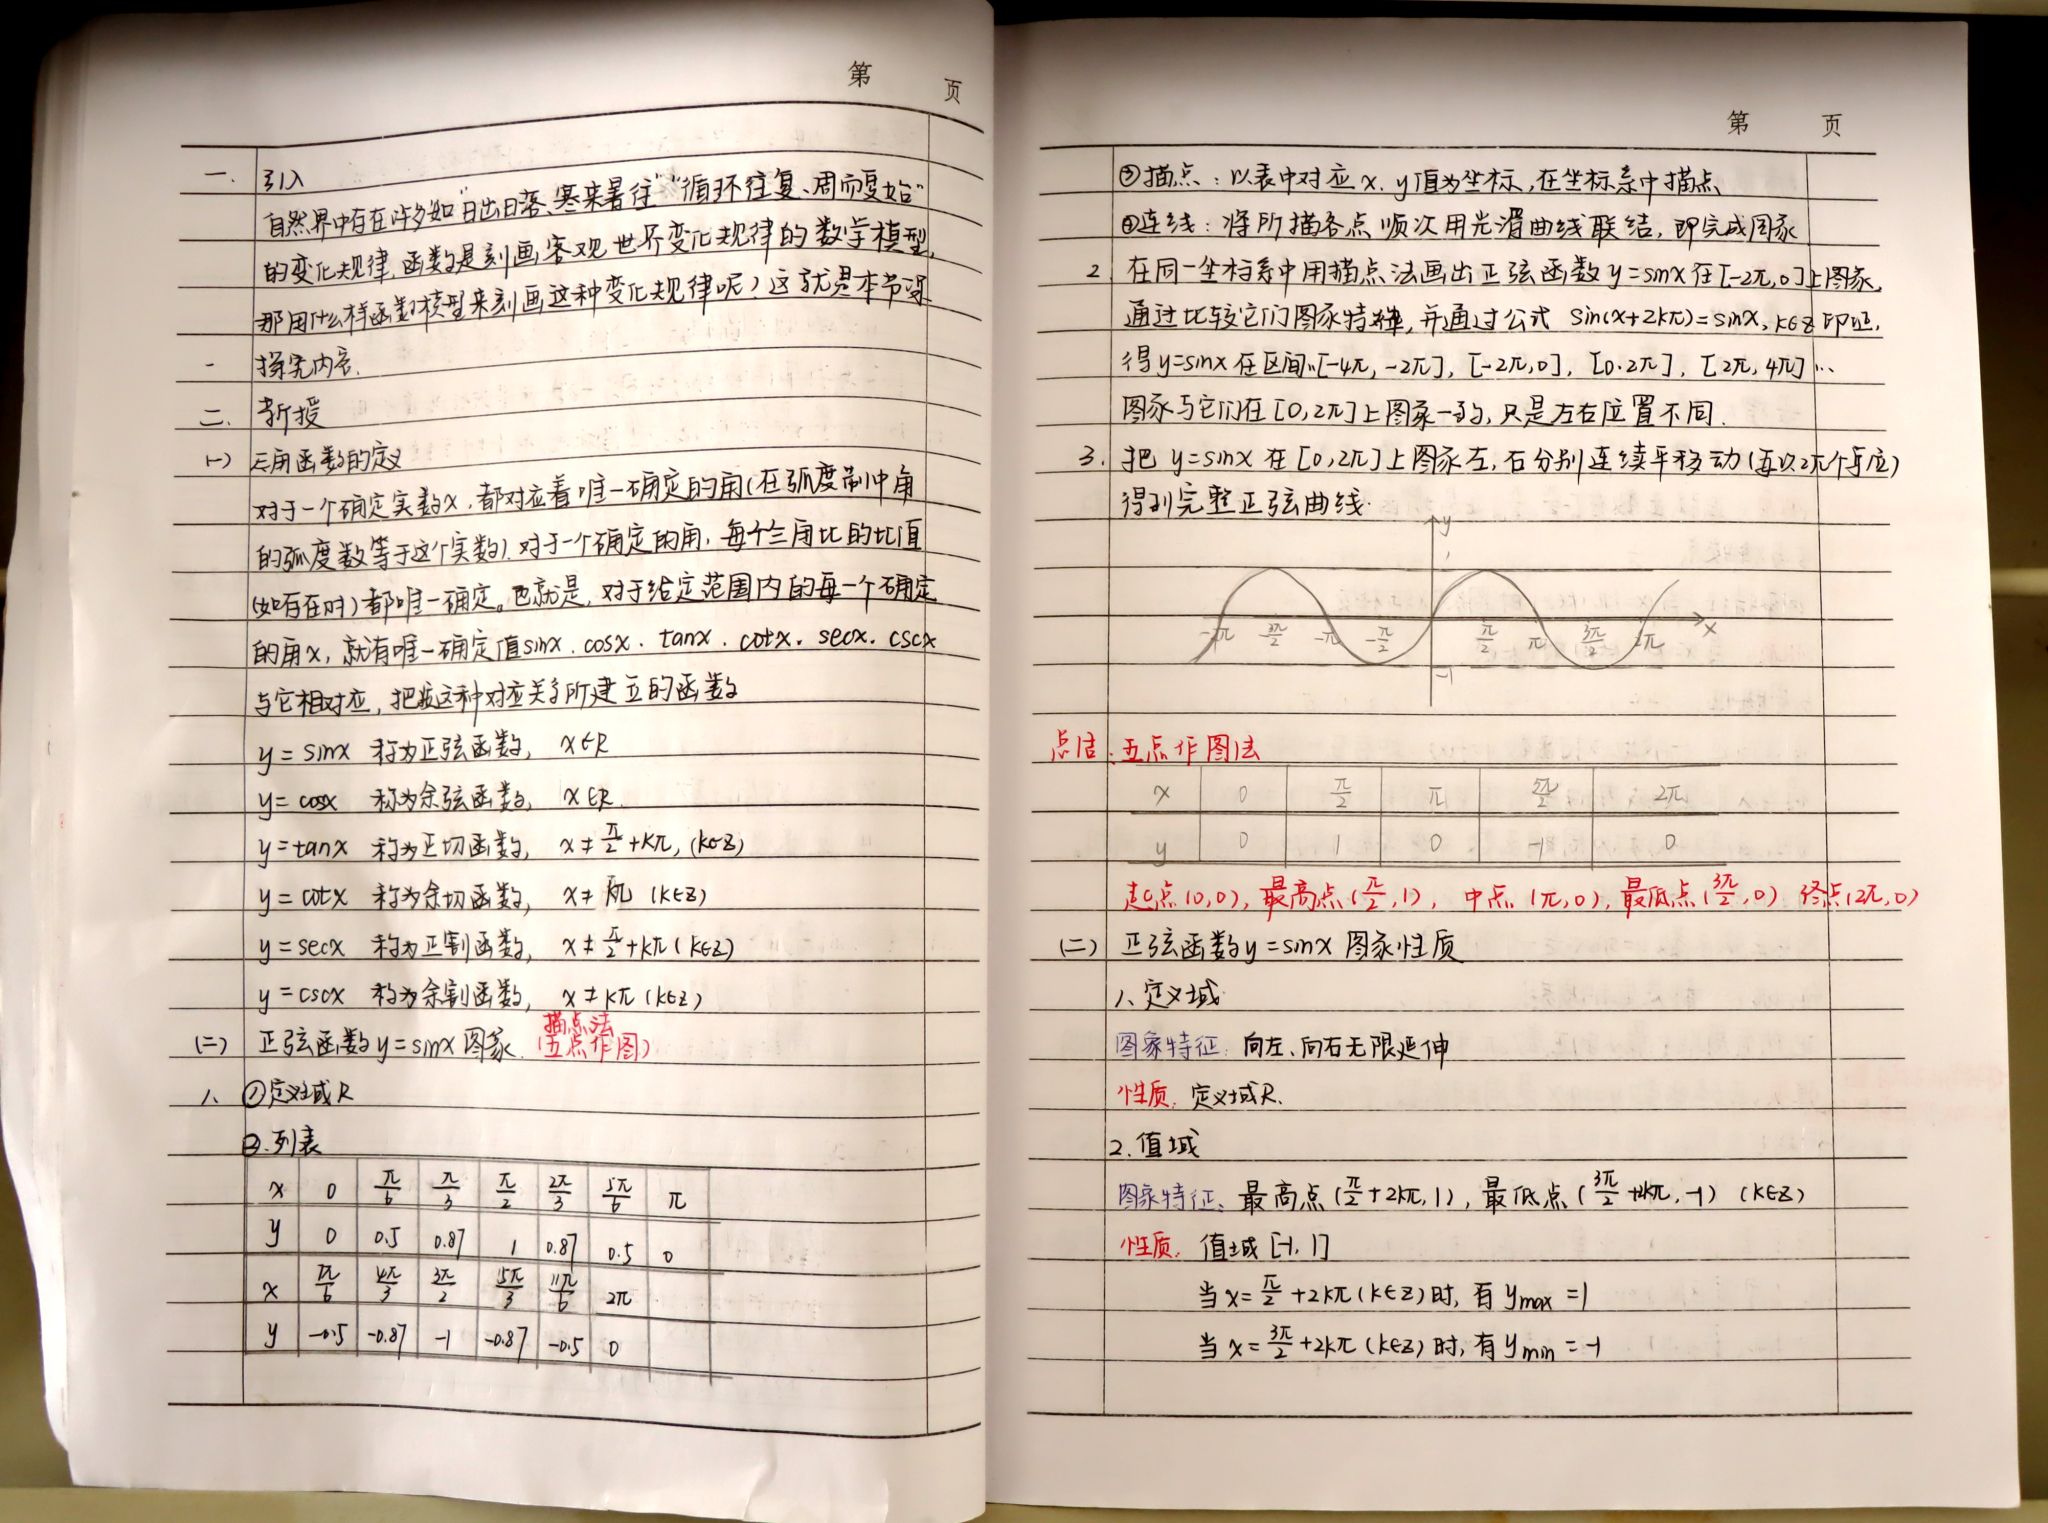 第 页
一. 引入
自然界中存在许多如"日出日落、寒来暑往""循环往复、周而复始"
的变化规律,函数是刻画客观世界变化规律的数学模型,
那用什么样函数模型来刻画这种变化规律呢?这就是本节课
- 探究内容.
二. 新授
(一) 三角函数的定义
对于一个确定实数x,都对应着唯一确定的角(在弧度制中角
的弧度数等于这个实数).对于一个确定的角,每个三角比的比值
(如存在时)都唯一确定。也就是,对于给定范围内的每一个确定
的角x,就有唯一确定值sinx.cosx.tanx.cotx.secx.cscx
与它相对应,把按这种对应关系所建立的函数
y=sinx 称为正弦函数, x∈R
y=cosx 称为余弦函数, x∈R.
y=tanx 称为正切函数, x≠π/2+kπ,(k∈Z)
y=cotx 称为余切函数, x≠kπ (k∈Z)
y=secx 称为正割函数, x≠π/2+kπ(k∈Z)
y=cscx 称为余割函数, x≠kπ(k∈Z)
描点法
(二) 正弦函数y=sinx图象.(五点作图)
1. ①定义域R
②.列表
x 0 π/6 π/3 π/2 2π/3 5π/6 π
y 0 0.5 0.87 1 0.87 0.5 0
x 7π/6 4π/3 3π/2 5π/3 11π/6 2π
y -0.5 -0.87 -1 -0.87 -0.5 0
第 页
③描点:以表中对应x.y值为坐标,在坐标系中描点
④连线:将所描各点顺次用光滑曲线联结,即完成图象
2. 在同一坐标系中用描点法画出正弦函数y=sinx在[-2π,0]上图象,
通过比较它们图象特征,并通过公式 sin(x+2kπ)=sinx,k∈Z印证,
得y=sinx在区间…[-4π,-2π],[-2π,0],[0.2π],[2π,4π]…
图象与它们在[0,2π]上图象一致,只是左右位置不同.
3. 把y=sinx在[0,2π]上图象左,右分别连续平移动(每次2π个单位)
得到完整正弦曲线.
y
1
-2π -3π/2 -π -π/2 π/2 π 3π/2 2π x
-1
总结:五点作图法
x 0 π/2 π 3π/2 2π
y 0 1 0 -1 0
起点(0,0),最高点(π/2,1),中点(π,0),最低点(3π/2,0) 终点(2π,0)
(二) 正弦函数y=sinx图象性质
1、定义域
图象特征:向左、向右无限延伸
性质:定义域R.
2.值域
图象特征:最高点(π/2+2kπ,1),最低点(3π/2+2kπ,-1) (k∈Z)
性质:值域[-1,1]
当x=π/2+2kπ(k∈Z)时,有ymax=1
当x=3π/2+2kπ(k∈Z)时,有ymin=-1